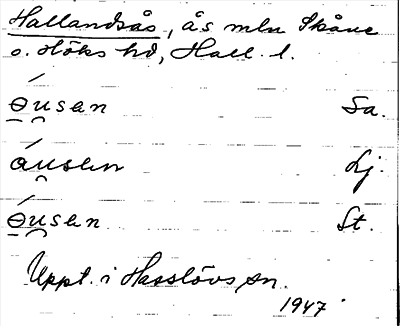 Hallandsås, ås mln Skåne
o. Höks hd, Hall. l.
ɵ́u̯sɘn Sa.
áu̯sɘn Lj.
ɵ́u̯sɘn St.
Uppt. i Hasslövs sn.
1947